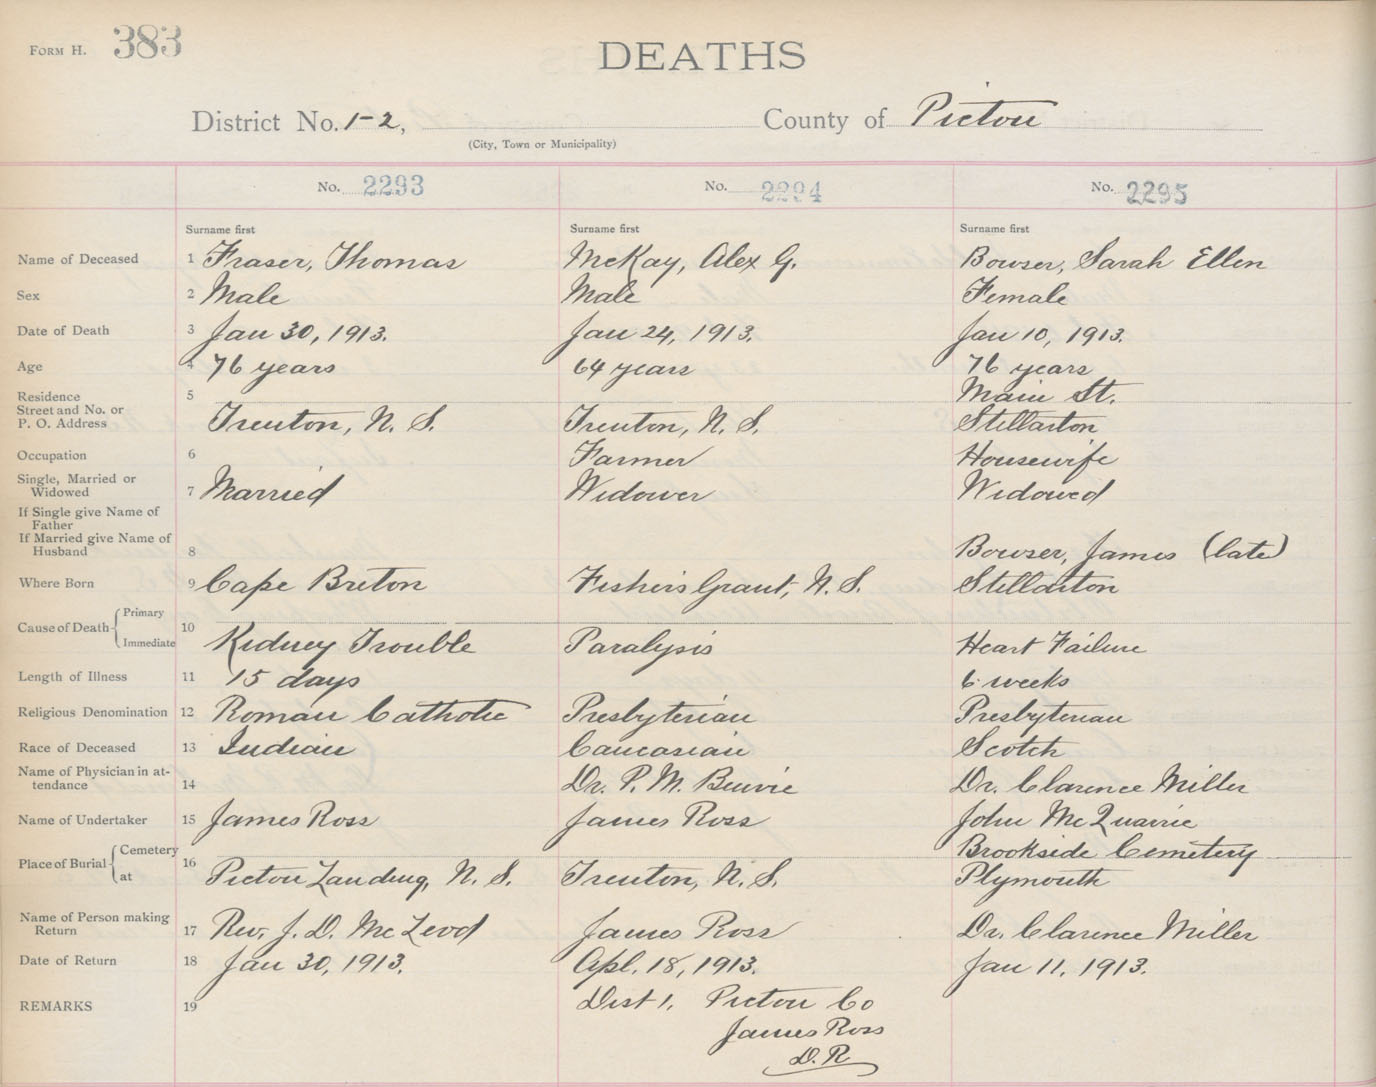 FORM H. 383
DEATHS
District No. 1-2, County of Pictou
(City, Town or Municipality)
No. 2293 No. 2294 No. 2295
Surname first Surname first Surname first
Name of Deceased 1 Fraser, Thomas McKay, Alex G. Bowser, Sarah Ellen
Sex 2 Male Male Female
Date of Death 3 Jan 30, 1913. Jan 24, 1913. Jan 10, 1913.
Age 4 76 years 64 years 76 years
Residence 5 Main St.
Street and No. or
P. O. Address Trenton, N. S. Trenton, N. S. Stellarton
Occupation 6 Farmer Housewife
Single, Married or
Widowed 7 Married Widower Widowed
If Single give Name of
Father
If Married give Name of
Husband 8 Bowser, James (late)
Where Born 9 Cape Breton Fishers Grant, N. S. Stellarton
Cause of Death Primary 10
Immediate Kidney Trouble Paralysis Heart Failure
Length of Illness 11 15 days 6 weeks
Religious Denomination 12 Roman Catholic Presbyterian Presbyterian
Race of Deceased 13 Indian Caucasian Scotch
Name of Physician in at-
tendance 14 Dr. P. M. Dr. Clarence Miller
Name of Undertaker 15 James Ross James Ross John McQuarrie
Place of Burial Cemetery 16 Brookside Cemetery
at Pictou Landing, N. S. Trenton, N. S. Plymouth
Name of Person making
Return 17 Rev. J. D. McLeod James Ross Dr. Clarence Miller
Date of Return 18 Jan 30, 1913. Apl. 18, 1913. Jan 11, 1913.
REMARKS 19 Dist 1, Pictou Co
James Ross
D. R